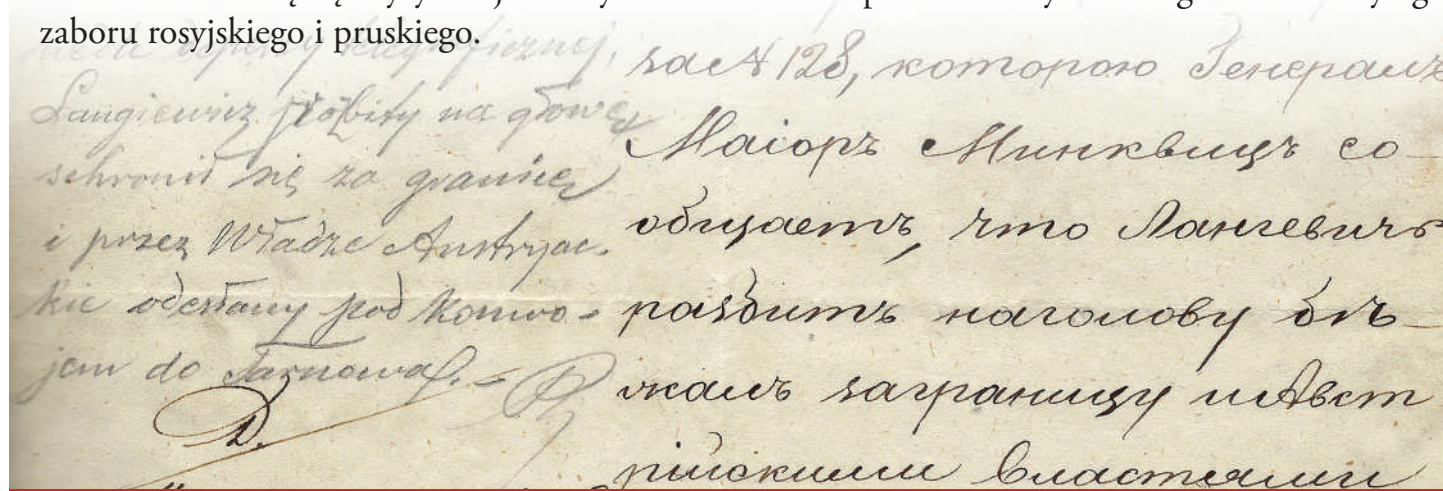 zaboru rosyjskiego i pruskiego.
telegraficznej,
Langiewicz pobity na głowę
schronił się za granicę
i przez Władze Austryac-
kie odesłany pod konwo-
jem do Tarnowa.
D.
за № 128, которою Генералъ
Маіоръ Минквицъ со-
общаетъ, что Лангевичъ
разбитъ наголову бѣ-
жалъ заграницу и Авст
рійскими властями